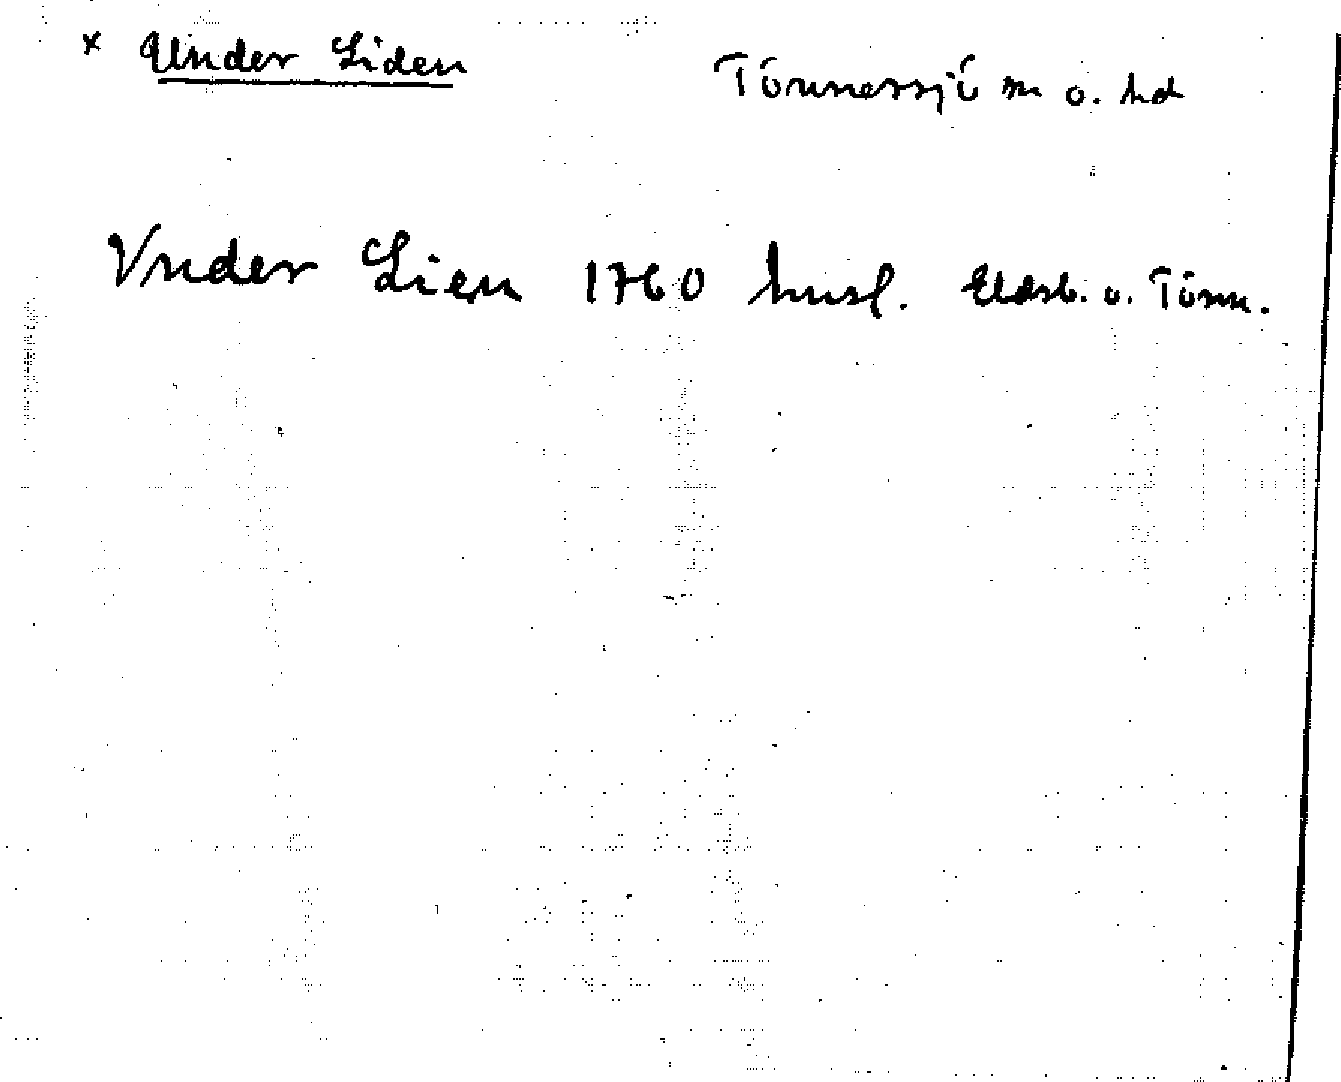 × Under Liden Tönnersjö sn o. hd
Vnder Lien 1760 husf. Eldsb. o. Tönn.